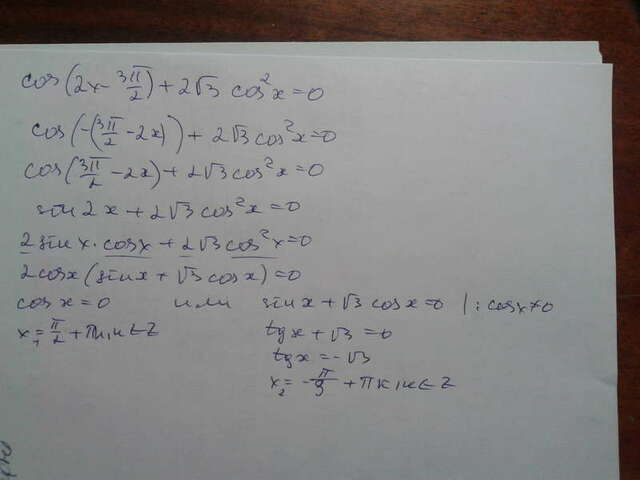 cos(2x - 3π/2) + 2√3 cos²x = 0
cos(-(3π/2 - 2x)) + 2√3 cos²x = 0
cos(3π/2 - 2x) + 2√3 cos²x = 0
sin 2x + 2√3 cos²x = 0
2 sin x · cos x + 2√3 cos²x = 0
2cos x (sin x + √3 cos x) = 0
cos x = 0 или sin x + √3 cos x = 0 | : cos x ≠ 0
x₁ = π/2 + πk, k ∈ Z tg x + √3 = 0
tg x = -√3
x₂ = -π/3 + πk, k ∈ Z